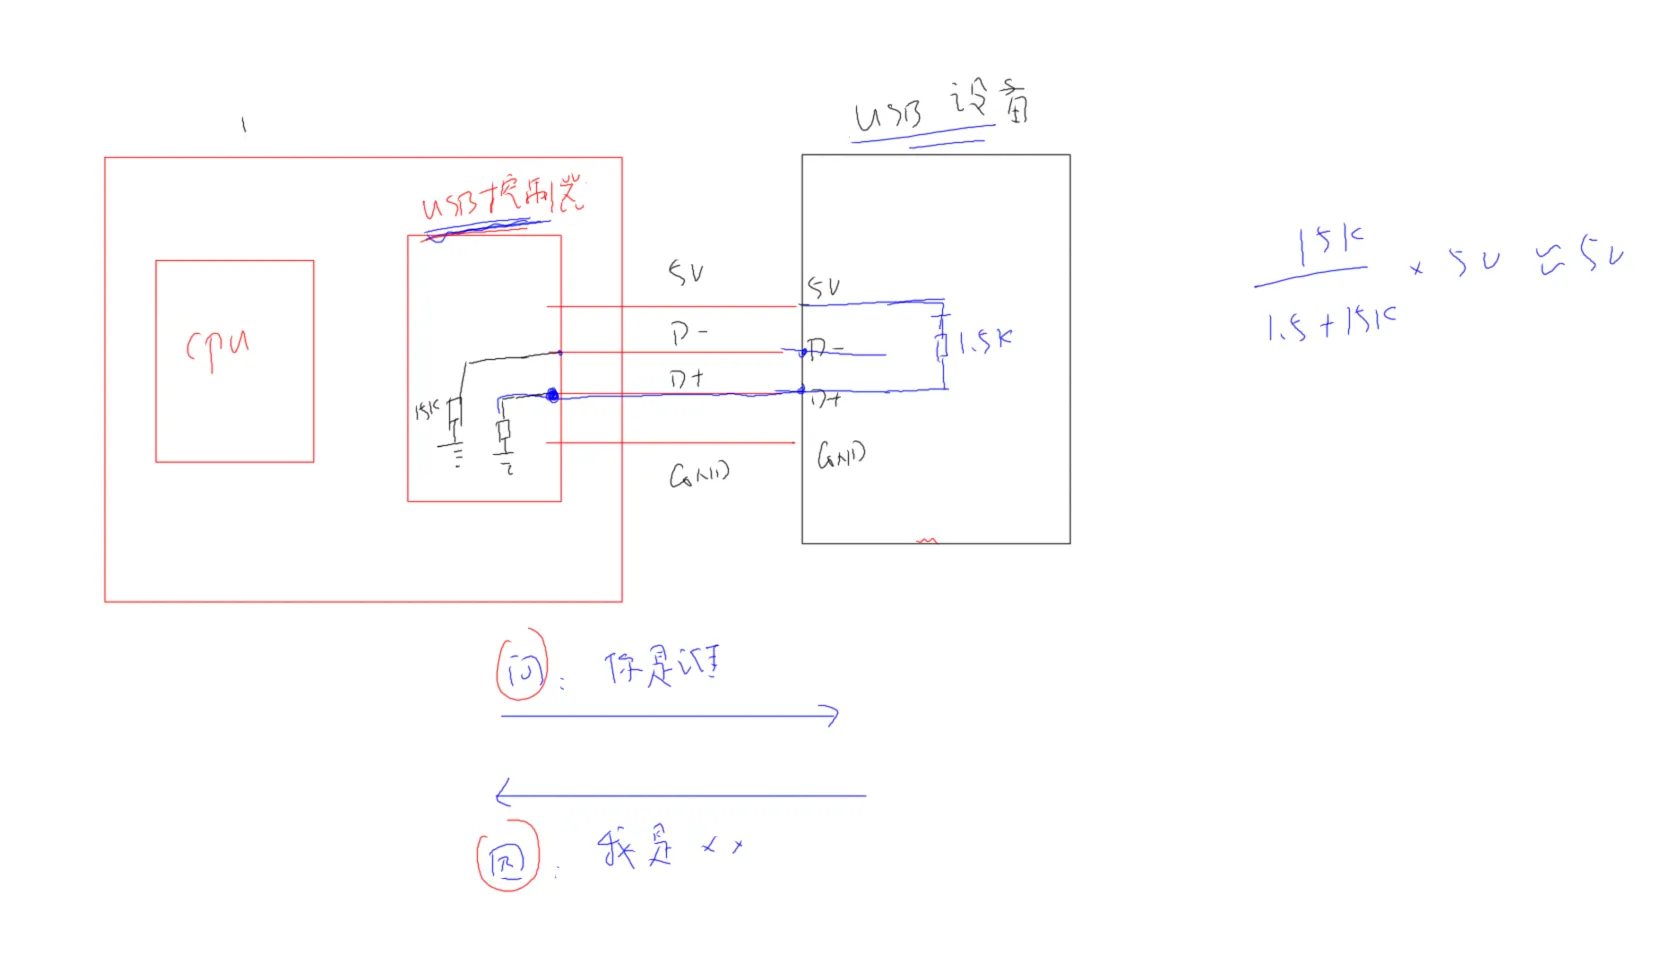 USB 设备
USB控制器
CPU
5V
D-
D+
GND
5V
D-
D+
GND
1.5K
15K
15K
1.5+15K
× 5V ≈ 5V
问: 你是谁
回: 我是 ××